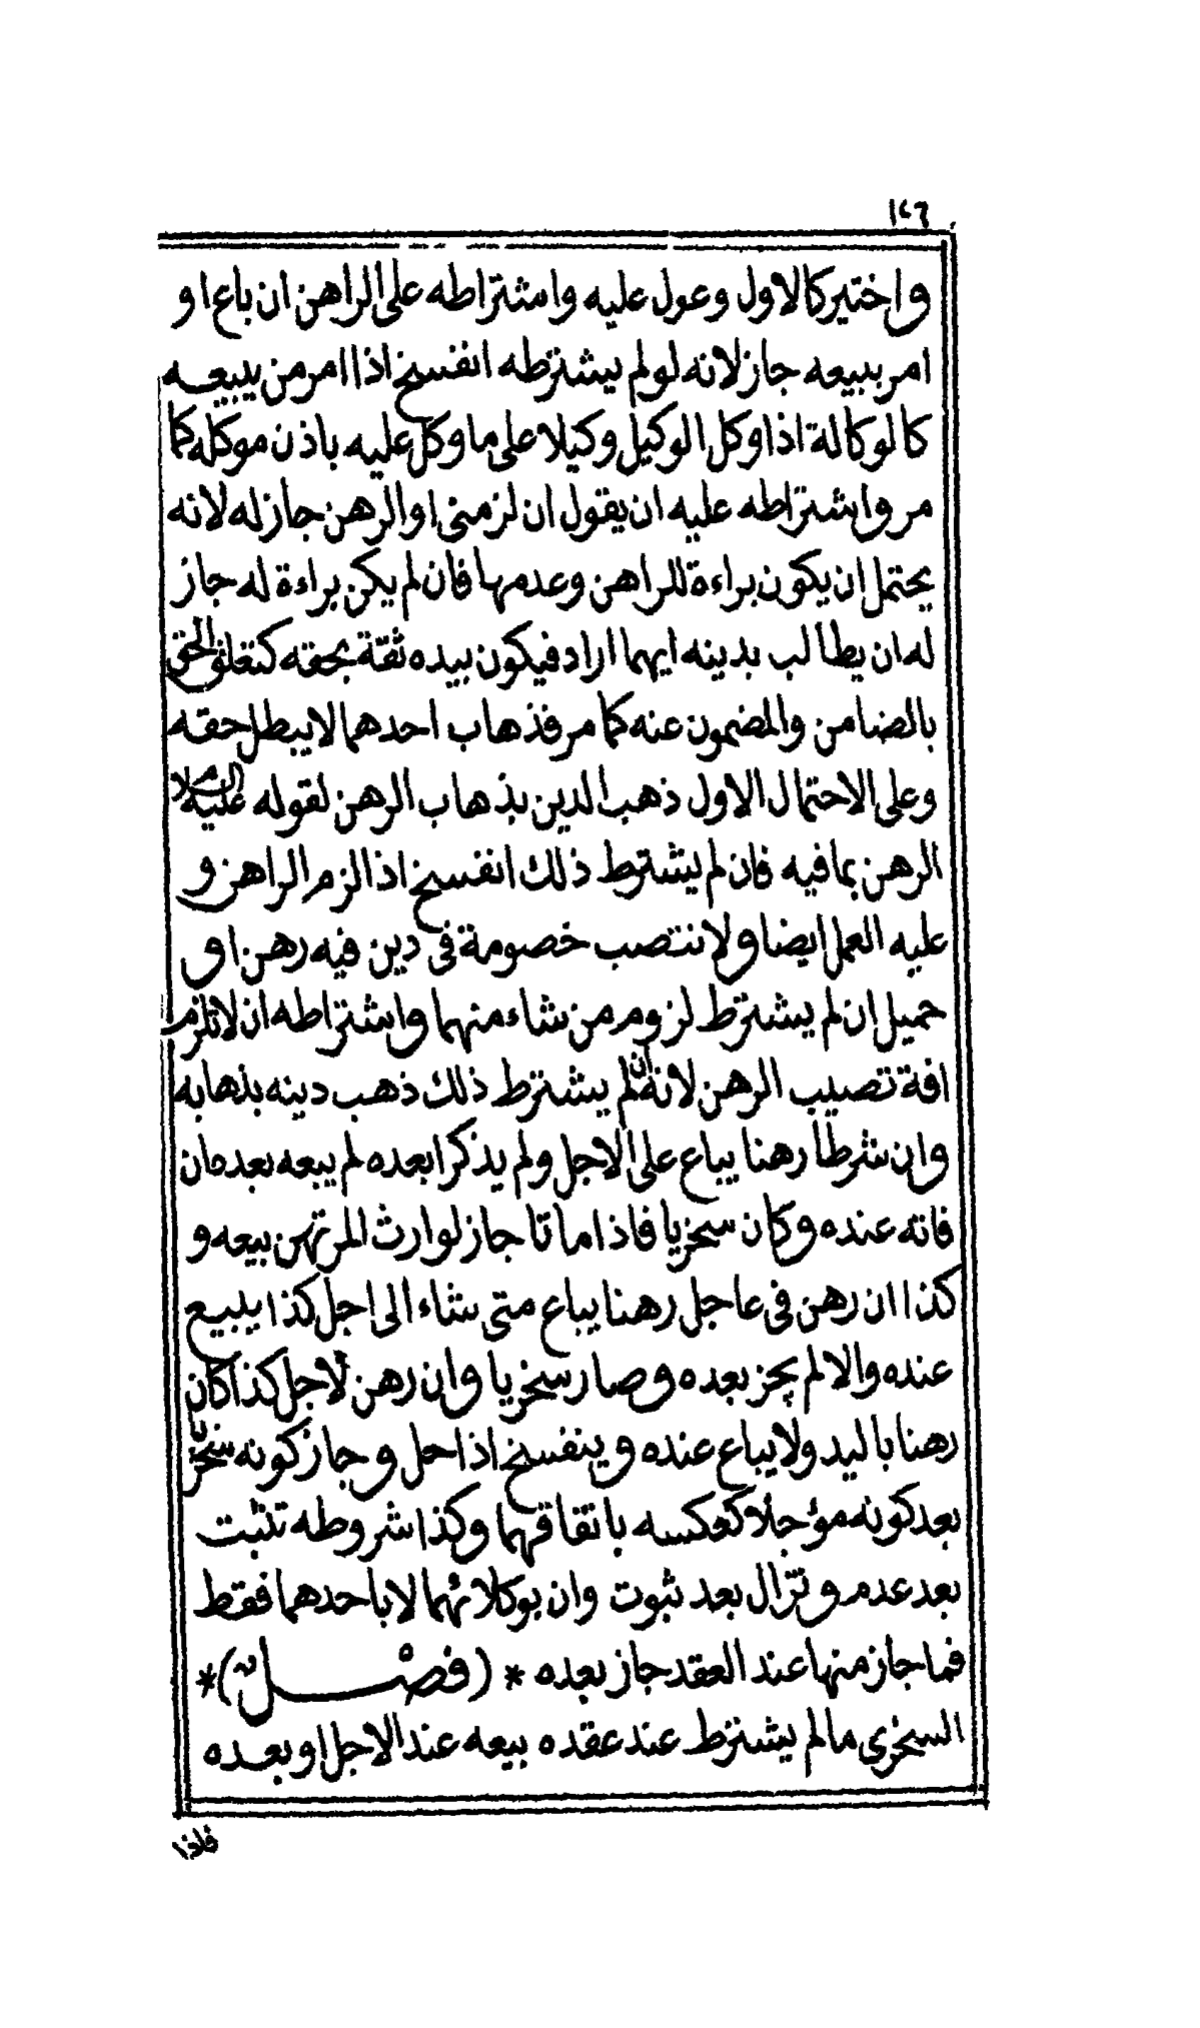 ١٤٦
واختير كالاول وعول عليه واشتراطه على الراهن ان باع او
امر ببيعه جاز لانه لو لم يشترطه انفسخ اذا امر من يبيعه
كالوكالة اذا وكل الوكيل وكيلا على ما وكل عليه باذن موكله كما
مر واشتراطه عليه ان يقول ان لزمنى او الرهن جاز له لانه
يحتمل ان يكون براءة للراهن وعدمها فان لم يكن براءة له جاز
له ان يطالب بدينه ايهما اراد فيكون بيده ثقة بحقه كتعلق الحق
بالضامن والمضمون عنه كما مر فذهاب احدهما لا يبطل حقه
وعلى الاحتمال الاول ذهب الدين بذهاب الرهن لقوله عليه السلام
الرهن بما فيه فان لم يشترط ذلك انفسخ اذا الزم الراهن و
عليه العمل ايضا ولا ننتصب خصومة فى دين فيه رهن او
حميل ان لم يشترط لزوم من شاء منهما واشتراطه ان لا تلزم
افة تصيب الرهن لانه ان لم يشترط ذلك ذهب دينه بذهابه
وان شرطا رهنا يباع على الاجل ولم يذكرا بعده لم يبعه بعده ان
فاته عنده وكان سخريا فاذا ماتا جاز لوارث المرتهن بيعه و
كذا ان رهن فى عاجل رهنا يباع متى شاء الى اجل كذا يبيع
عنده والا لم يجز بعده وصار سخريا وان رهن لأجل كذا كان
رهنا باليد ولا يباع عنده وينفسخ اذا حل وجاز كونه سخريا
بعد كونه مؤجلا كعكسه باتفاقهما وكذا شروطه تثبت
بعد عدم وتزال بعد ثبوت وان بوكلائهما لا باحدهما فقط
فما جاز منها عند العقد جاز بعده * (فصل) *
السخرى ما لم يشترط عند عقده بيعه عند الاجل او بعده
فاذا